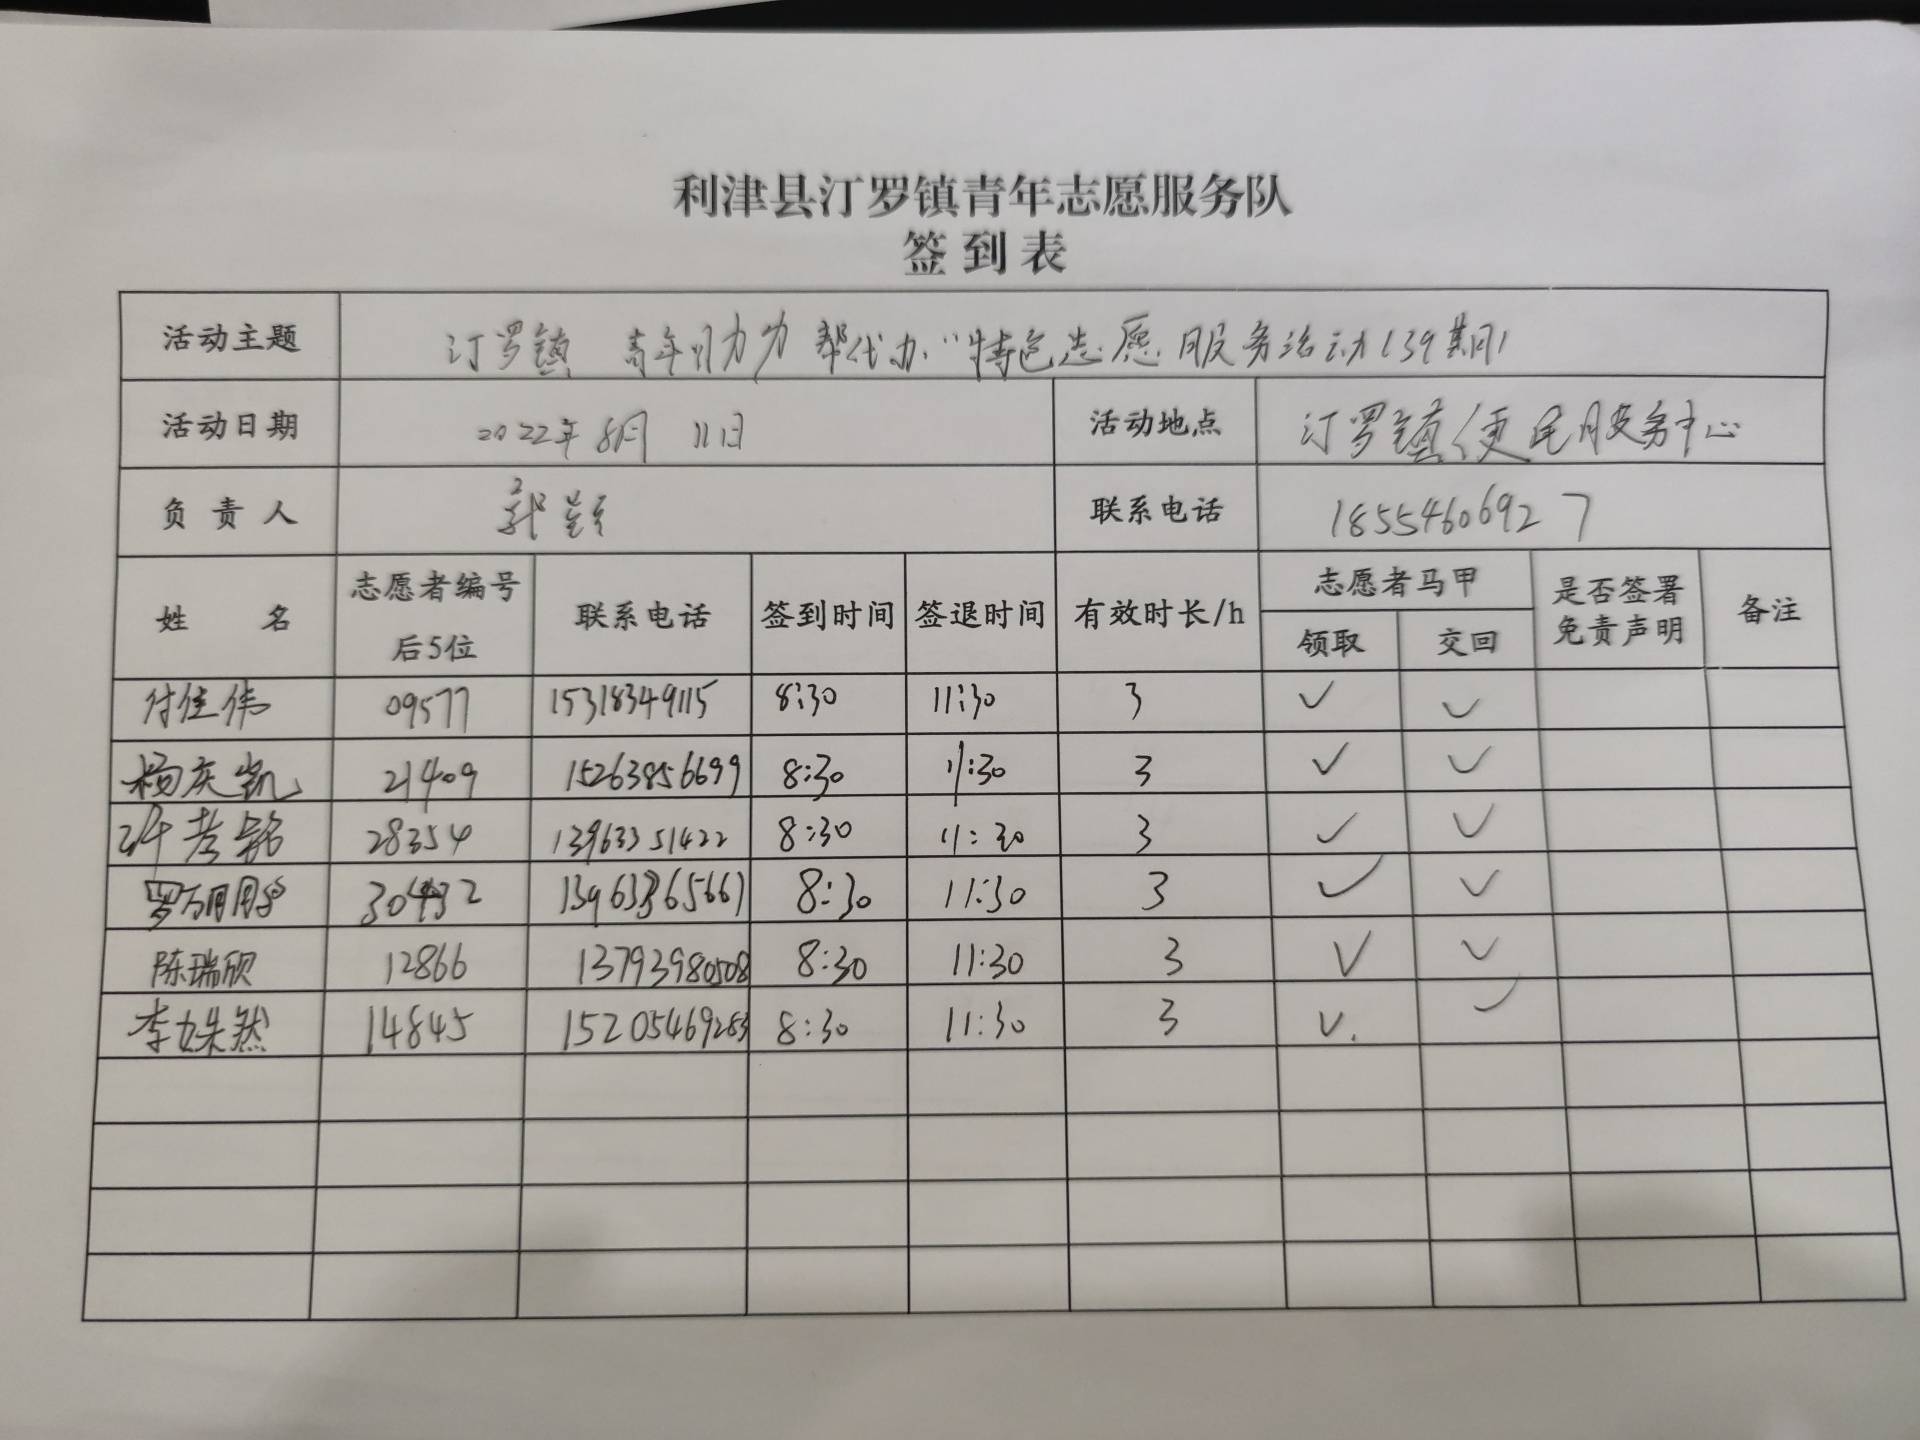 利津县汀罗镇青年志愿服务队
签到表
活动主题 汀罗镇 青年助力 帮代办"特色志愿服务活动(39期)
活动日期 2022年8月11日 活动地点 汀罗镇便民服务中心
负责人 联系电话 18554606927
姓名 志愿者编号后5位 联系电话 签到时间 签退时间 有效时长/h 志愿者马甲 领取 交回 是否签署免责声明 备注
付佳伟 09577 15318349115 8:30 11:30 3 ✓ ✓
杨庆凯 21409 15263856699 8:30 11:30 3 ✓ ✓
28354 13963351422 8:30 11:30 3 ✓ ✓
罗万 30432 13963365661 8:30 11:30 3 ✓ ✓
陈瑞欣 12866 13793980508 8:30 11:30 3 ✓ ✓
李姝然 14845 15205469283 8:30 11:30 3 ✓ ✓